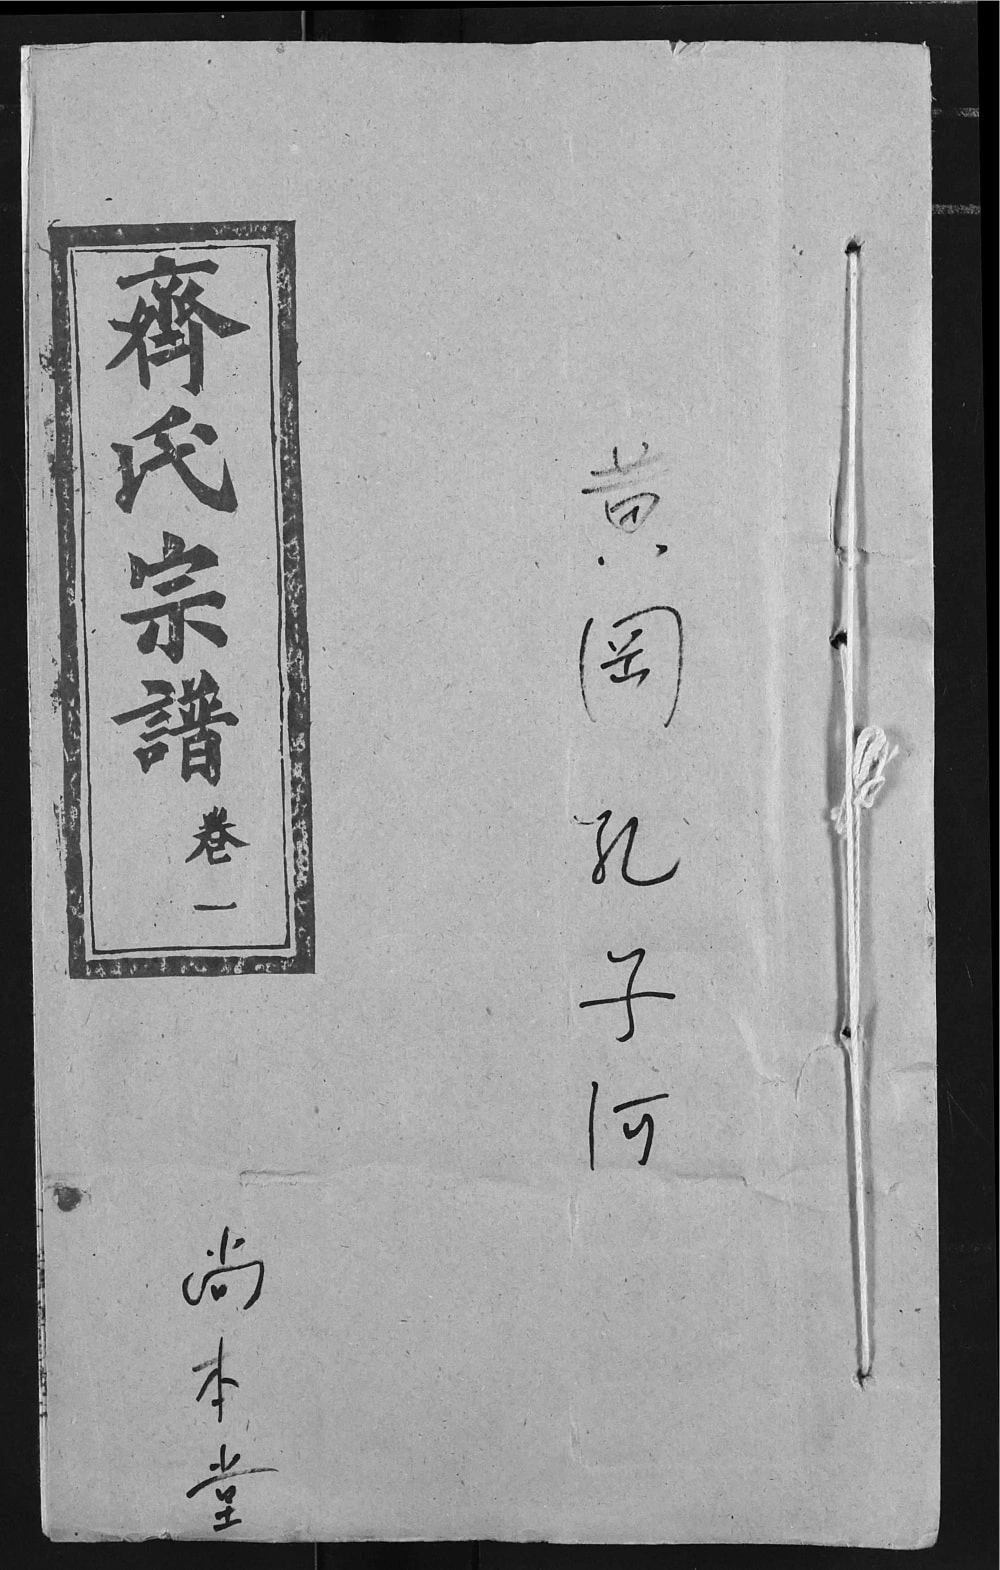 黄岡孔子河
齊氏宗譜 卷一
尚本堂